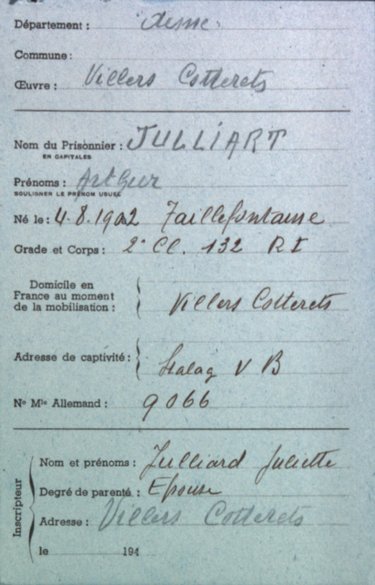 Département : Aisne
Commune :
Œuvre : Villers Cotterets
Nom du Prisonnier : JULLIART
EN CAPITALES
Prénoms : Arthur
SOULIGNER LE PRÉNOM USUEL
Né le : 4.8.1902 Taillefontaine
Grade et Corps : 2e Cl. 132 RI
Domicile en
France au moment
de la mobilisation :
Villers Cotterets
Adresse de captivité :
Stalag V B
No Mle Allemand : 9066
Inscripteur
Nom et prénoms : Julliard Juliette
Degré de parenté : Epouse
Adresse : Villers Cotterets
le 194